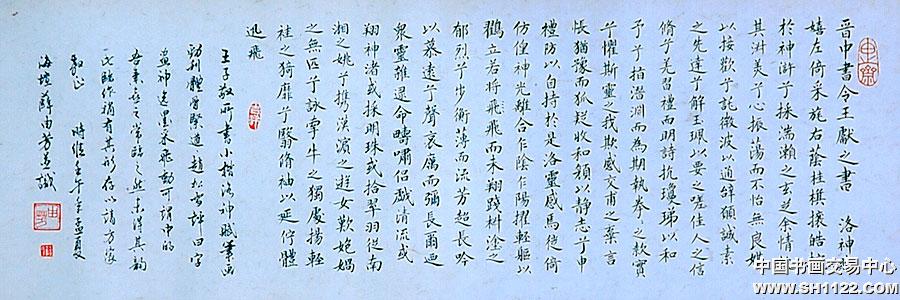 晉中書令王獻之書 洛神賦
嬉左倚采旄右蔭桂旗攘皓
於神滸兮採湍瀨之玄芝余情
其淑美兮心振蕩而不怡無良媒
以接歡兮託微波以通辭願誠素
之先達兮解玉珮以要之嗟佳人之信
脩兮羌習禮而明詩抗瓊珶以和
予兮指潛淵而為期執拳之款實
兮懼斯靈之我欺感交甫之棄言
悵猶豫而狐疑收和顏以靜志兮申
禮防以自持於是洛靈感焉徙倚
仿偟神光離合乍陰乍陽擢輕軀以
鸛立若將飛飛而未翔踐椒塗之
郁烈兮步蘅薄而流芳超長吟
以慕遠兮聲哀厲而彌長爾迺
眾靈雜遝命疇嘯侶戲清流或
翔神渚或採明珠或拾翠羽從南
湘之姚兮攜漢濱之遊女歎匏媧
之無匹兮詠牽牛之獨處揚輕
袿之猗靡兮翳脩袖以延佇體
迅飛
王子敬所書小楷洛神賦筆畫
勁利體骨緊遒趙松雪評曰字
畫神逸墨采飛動可謂中的
吾素喜之常臨之然未得其韵
此臨作稍有其形存以請方家
教正 時維壬午年孟夏
薛由芳並識
中国书画交易中心
www.SH1122.com